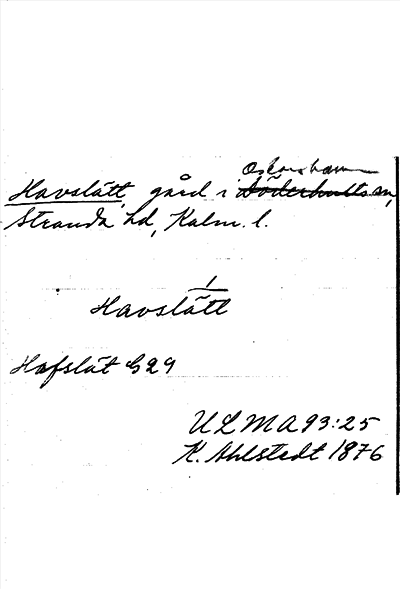 Oskarshamn
Havslätt, gård i Döderhults sn,
Stranda hd, Kalm. l.
Havslätt
Hafslät G29
ULMA 93:25
K. Ahlstedt 1876